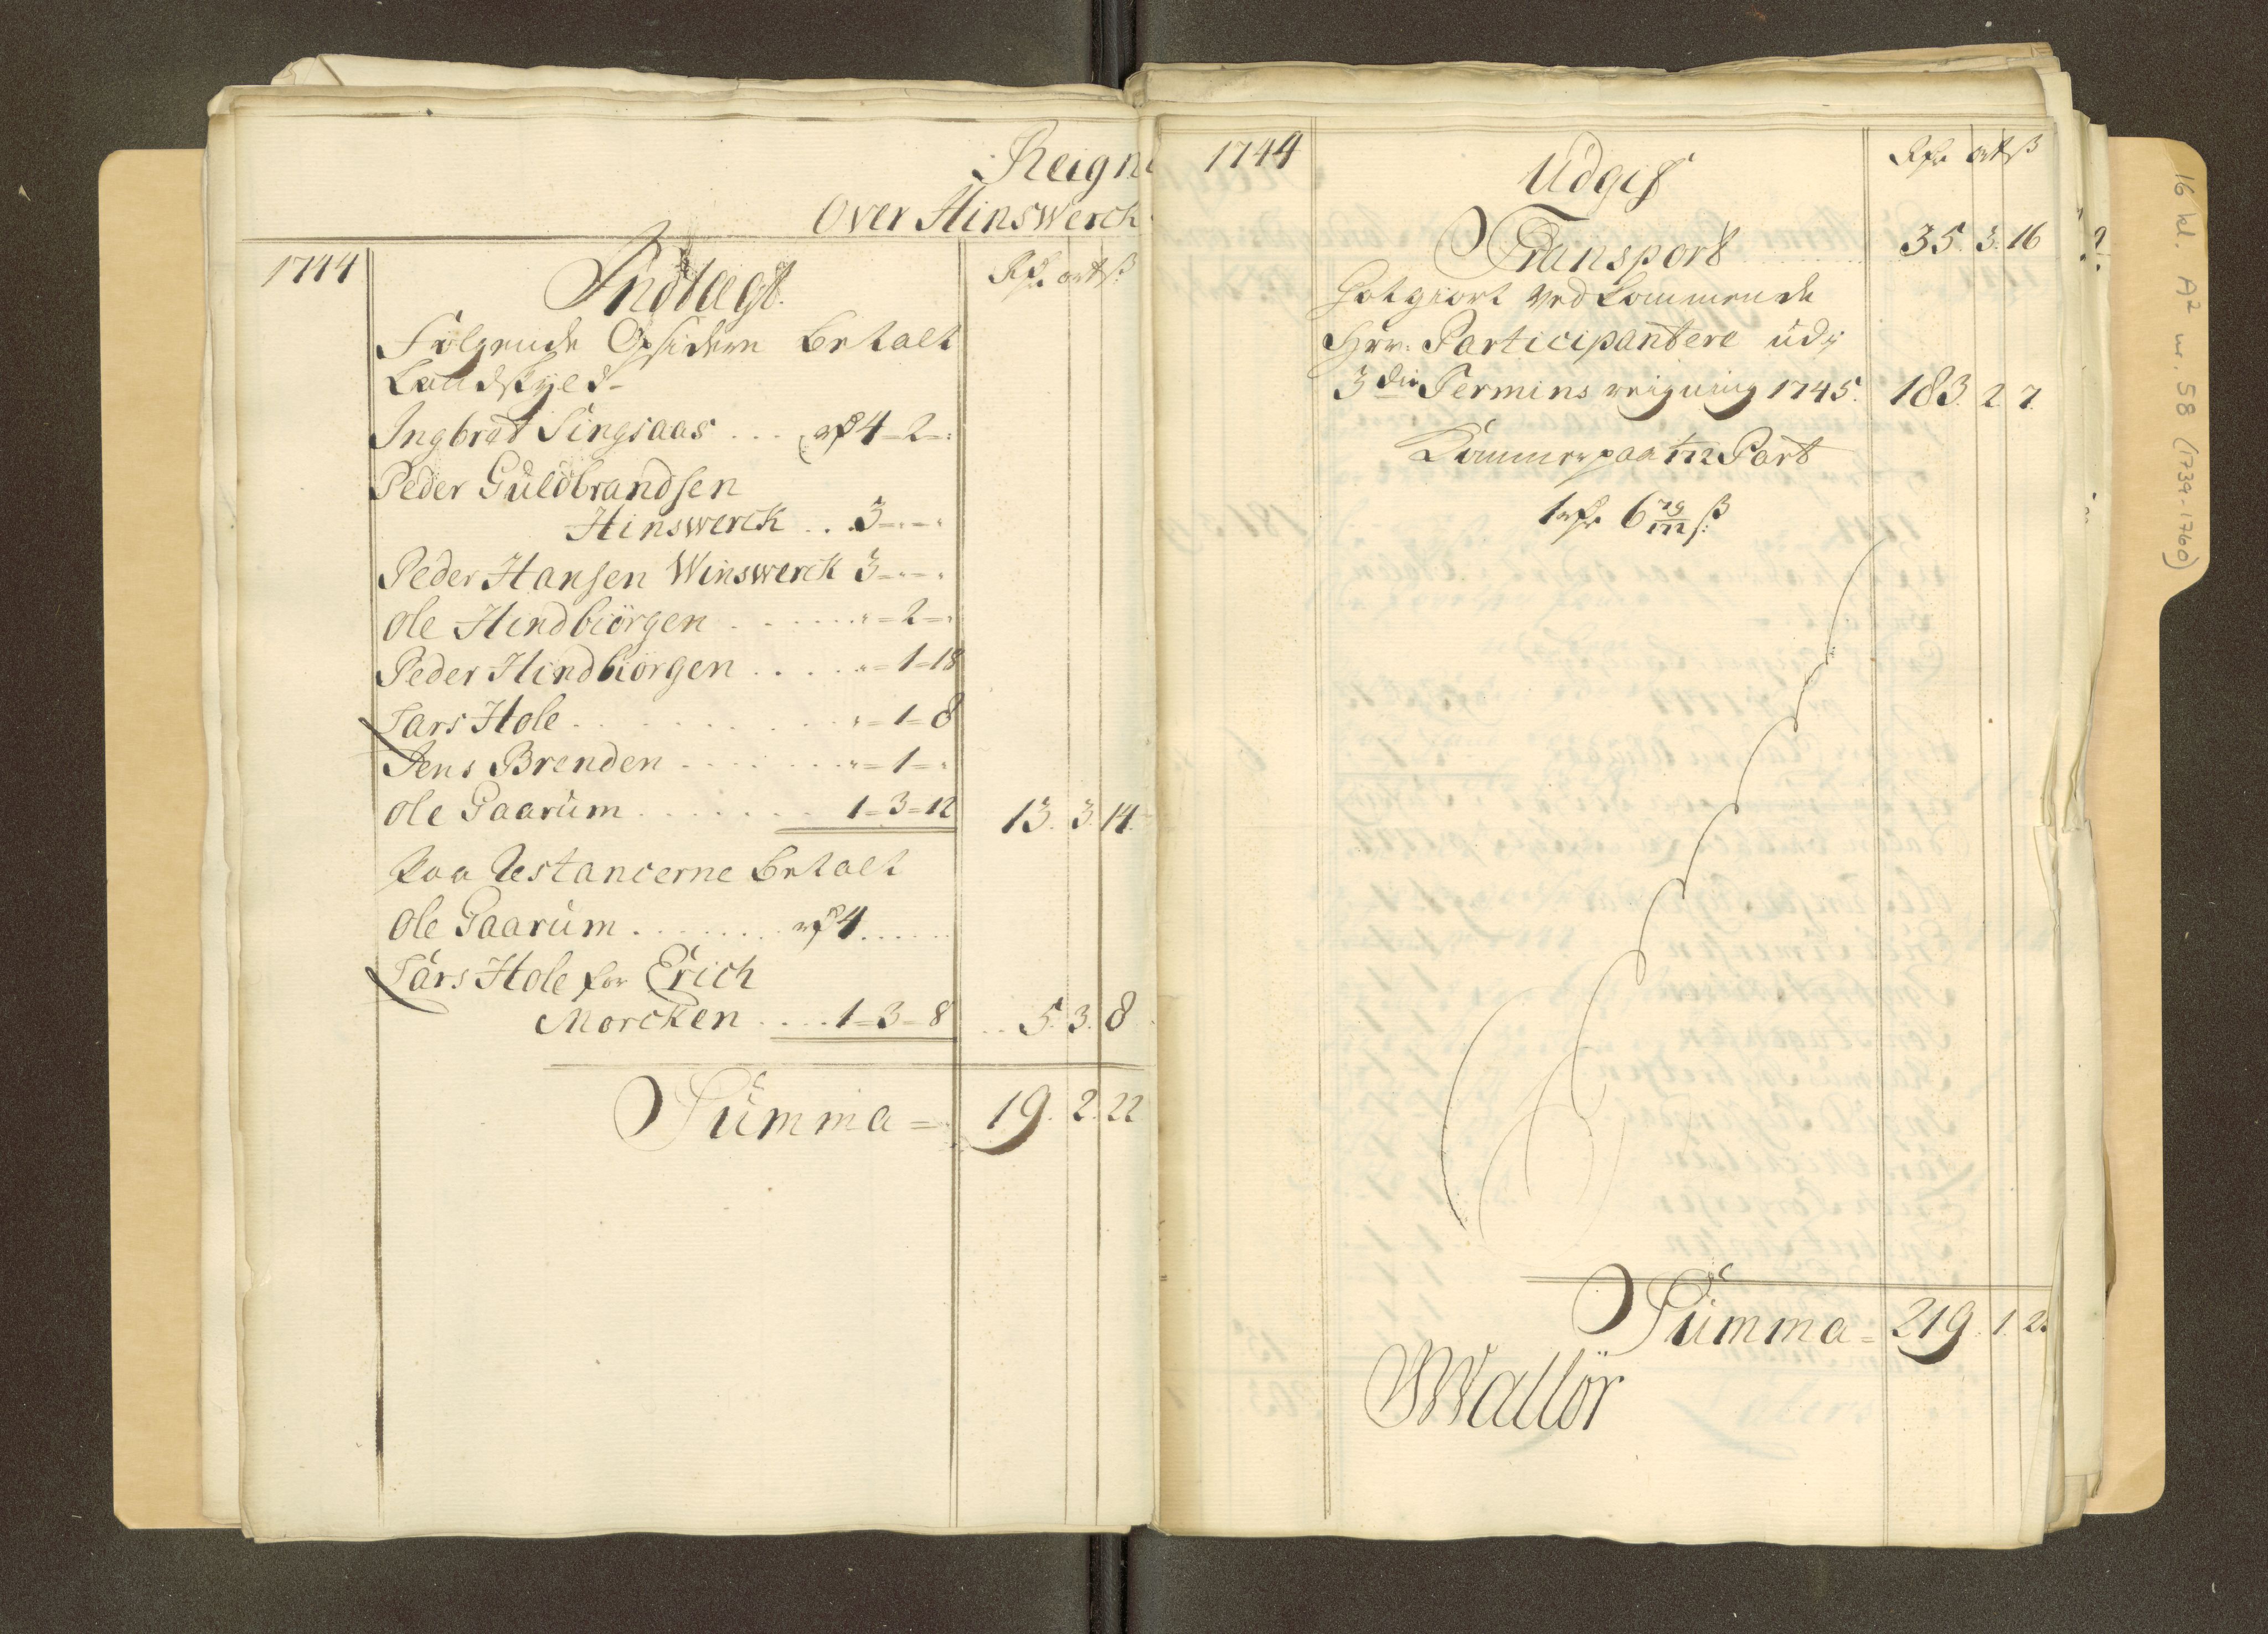 Reign
Over Hinswerck
1744
Indtægt.
Rdr. ort ß
Følgende Opsidere betalt
Landskyld-
Ingbret Singsaas ... rdr 4=2=:
Peder Guldbrandsen
Hinswerck ... 3=..=.
Peder Hansen Winswerck 3=..=.
Ole Hindbiörgen ...... "=2=.
Peder Hindbiörgen ..... "=1=18
Lars Hole ........ "=1=8
Jens Brenden ....... "=1=.
Ole Gaarum ....... 1=3=12 13. 3. 14.
paa Restancerne betalt
Ole Gaarum ....... rdr 4 ......
Lars Hole for Erich
Morcken .... 1=3=8 .. 5. 3. 8
Summa = 19. 2. 22
1744
Udgift
Rdr ort ß
Transport 35. 3. 16
Gotgiort Vedkommende
Hrr: Participantere udj
3die Termins reigning 1745. 183. 2. 7.
Kommer paa 1/172 Part
1 rdr 6 79/172 ß:
Summa = 219. 1. 2.
Wallör
16 kl. A2 nr. 58 (1739-1760)